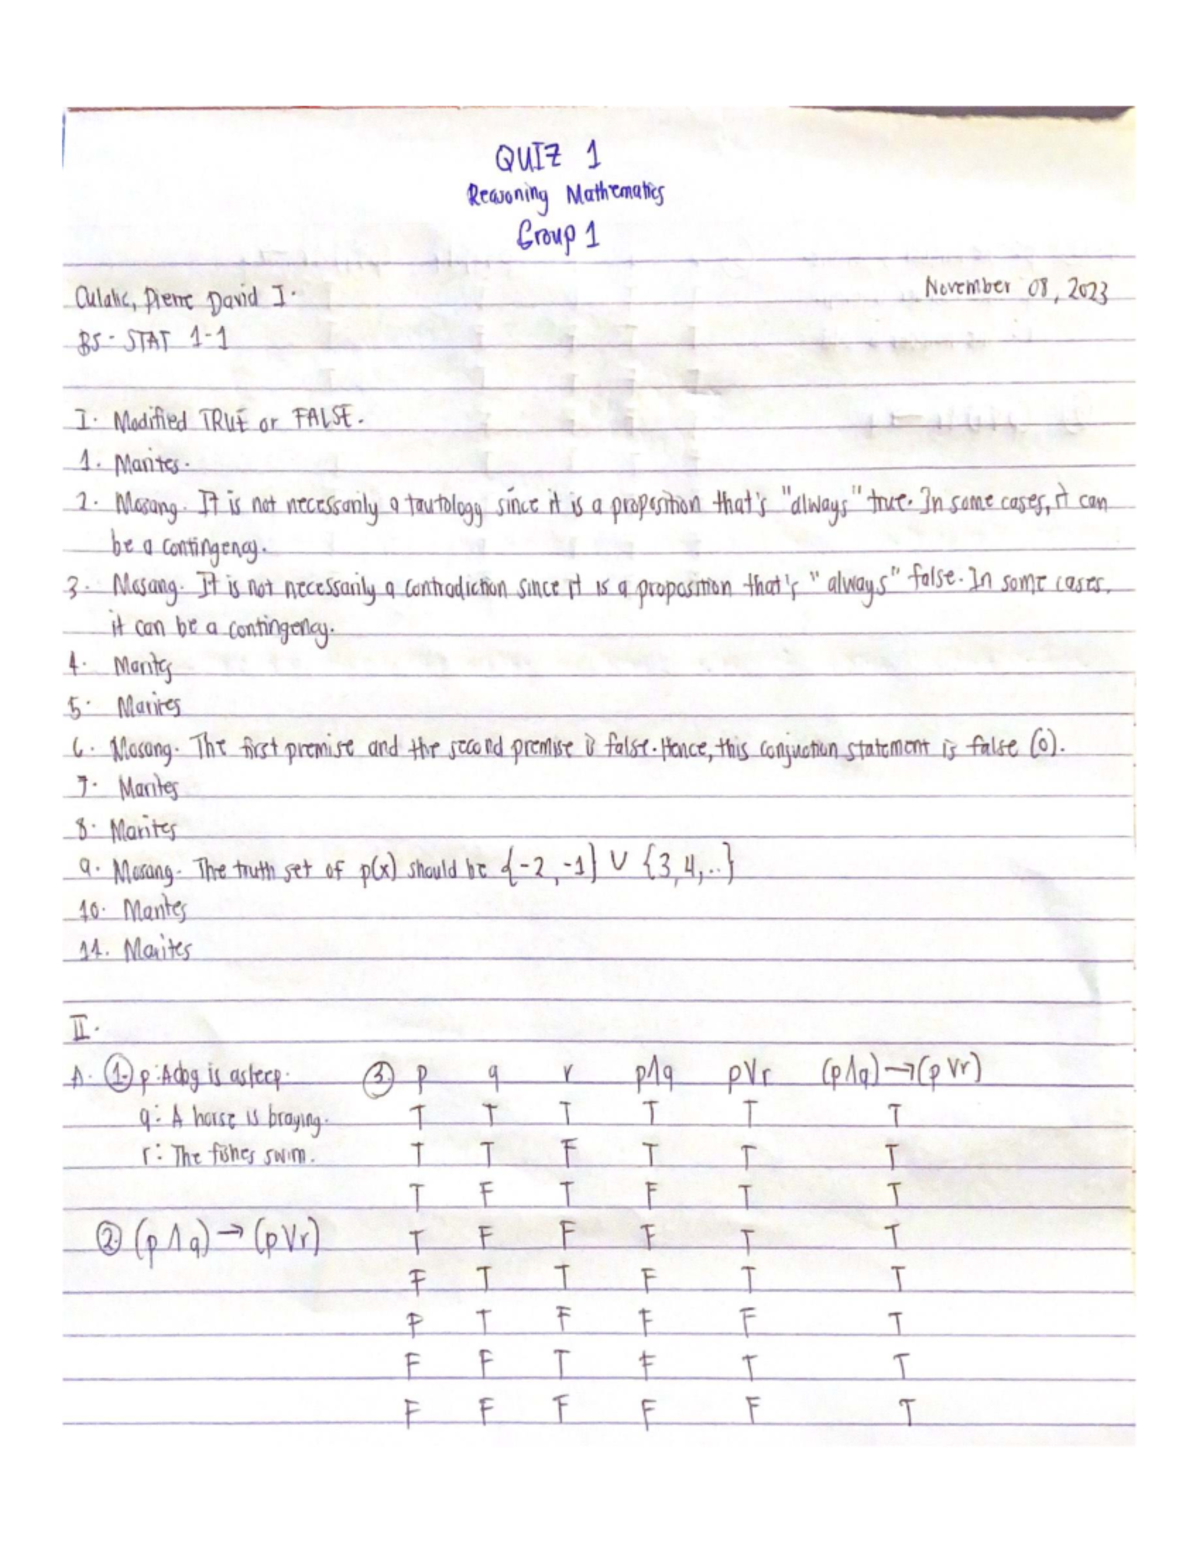 QUIZ 1
Reasoning Mathematics
Group 1
Culalic, Pierre David I.
November 08, 2023
BS-STAT 1-1
I. Modified TRUE or FALSE.
1. Marites.
2. Mosang. It is not necessarily a tautology since it is a proposition that's "always" true. In some cases, it can
be a contingency.
3. Mosang. It is not necessarily a contradiction since it is a proposition that's "always" false. In some cases,
it can be a contingency.
4. Marites
5. Marites
6. Mosang. The first premise and the second premise is false. Hence, this conjuction statement is false (0).
7. Marites
8. Marites
9. Mosang. The truth set of p(x) should be {-2, -1} ∪ {3, 4, ..}
10. Marites
11. Marites
II.
A. 1. p: A dog is asleep.
q: A horse is braying.
r: The fishes swim.
2. (p ∧ q) → (p ∨ r)
3. p q r p∧q p∨r (p∧q)→(p∨r)
T T T T T T
T T F T T T
T F T F T T
T F F F T T
F T T F T T
F T F F F T
F F T F T T
F F F F F T